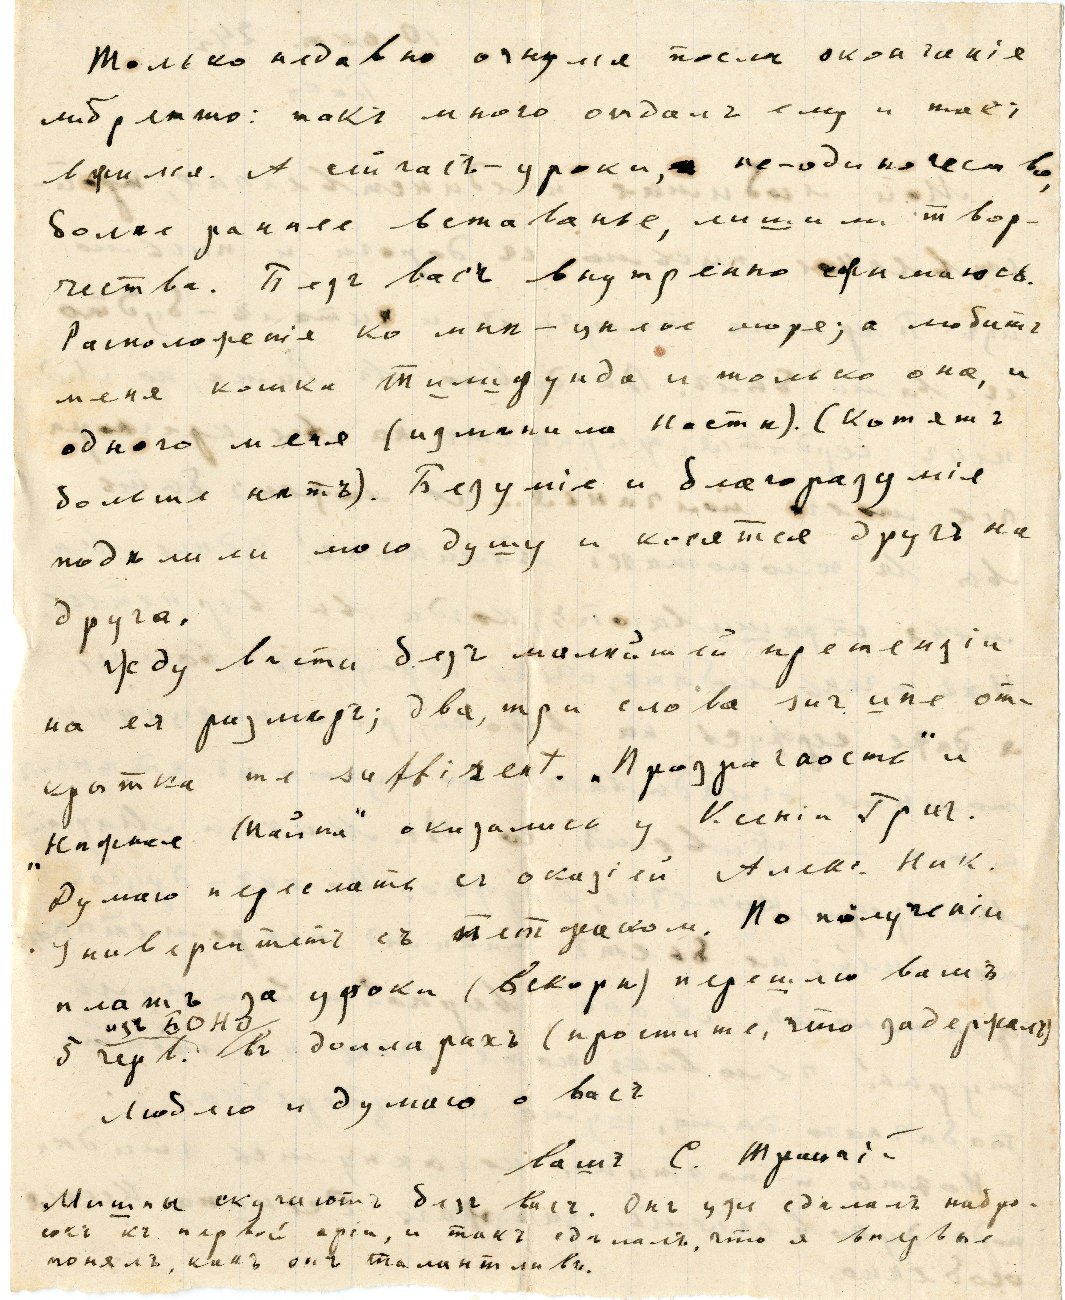 Только недавно очнулся послѣ окончанія
либретто: такъ много отдалъ ему и такъ
А сейчасъ – уроки, не-одиночество,
болѣе раннее вставанье, лишили твор-
чества. Безъ васъ внутренно сжимаюсь.
Расположенія ко мнѣ – цѣлое море; а любитъ
меня кошка и только она, и
одного меня (измѣнила Настѣ). (Котятъ
больше нѣтъ). Безуміе и благоразуміе
подѣлили мою душу и косятся другъ на
друга.
Жду вѣсти безъ малѣйшей претензіи
на ея размѣръ; два, три слова
крытка me suffizent. „Прозрачность“ и
„Нѣжная Тайна“ оказались у Ксеніи Григ.
Думаю переслать съ оказіей Алекс. Ник.
Университетъ съ По полученіи
платъ за уроки (вскорѣ) перешлю вамъ
изъ БОНО
5 черв. въ долларахъ (простите, что задержалъ)
Люблю и думаю о васъ
Вашъ С. Троцкій
Мишны скучаютъ безъ васъ. Онъ уже сдѣлалъ набро-
сокъ къ первой аріи, и такъ сдѣлалъ, что я впервые
понялъ, какъ онъ талантливъ.